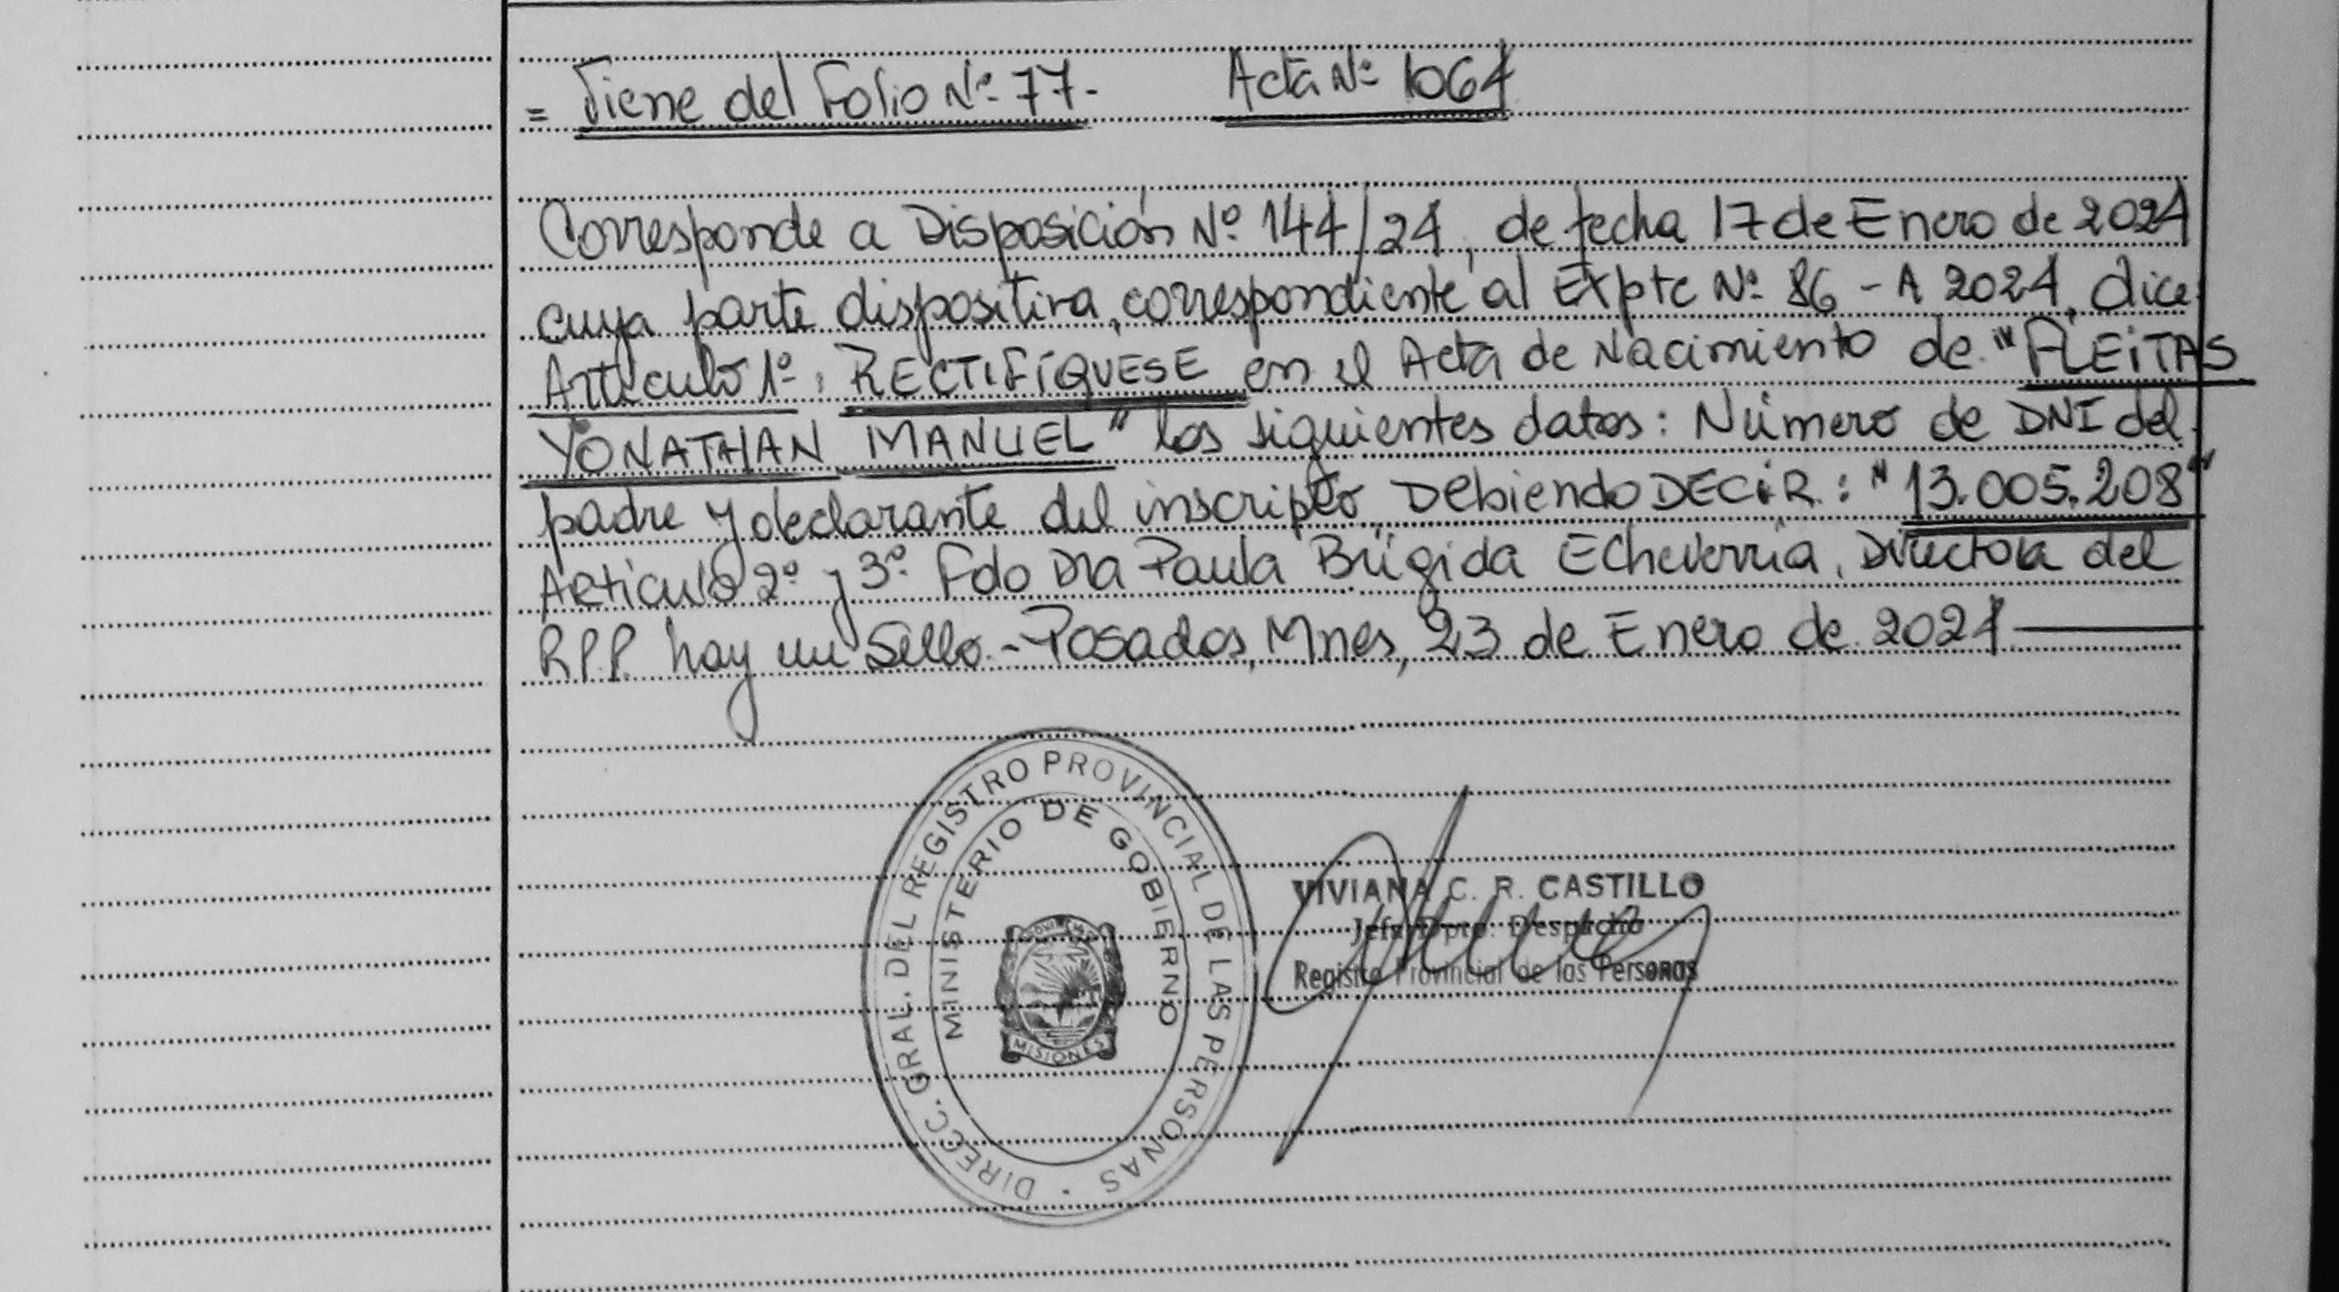 = Viene del Folio Nº 77.- Acta Nº 1064
Corresponde a Disposición Nº 144/24, de fecha 17 de Enero de 2024
cuya parte dispositiva, correspondiente al Expte Nº 86 - A 2024, dice:
Artículo 1º: RECTIFÍQUESE en el Acta de Nacimiento de "FLEITAS
YONATHAN MANUEL" los siguientes datos: Número de DNI del
padre y declarante del inscripto, Debiendo DECIR: "13.005.208"
Artículo 2º y 3º. Fdo Dra Paula Brígida Echeverria, Directora del
RPP. hay un Sello.- Posadas, Mnes, 23 de Enero de 2024
DIRECC. GRAL. DEL REGISTRO PROVINCIAL DE LAS PERSONAS
MINISTERIO DE GOBIERNO
MISIONES
VIVIANA C. R. CASTILLO
Jefa Dpto. Despacho
Registro Provincial de las Personas